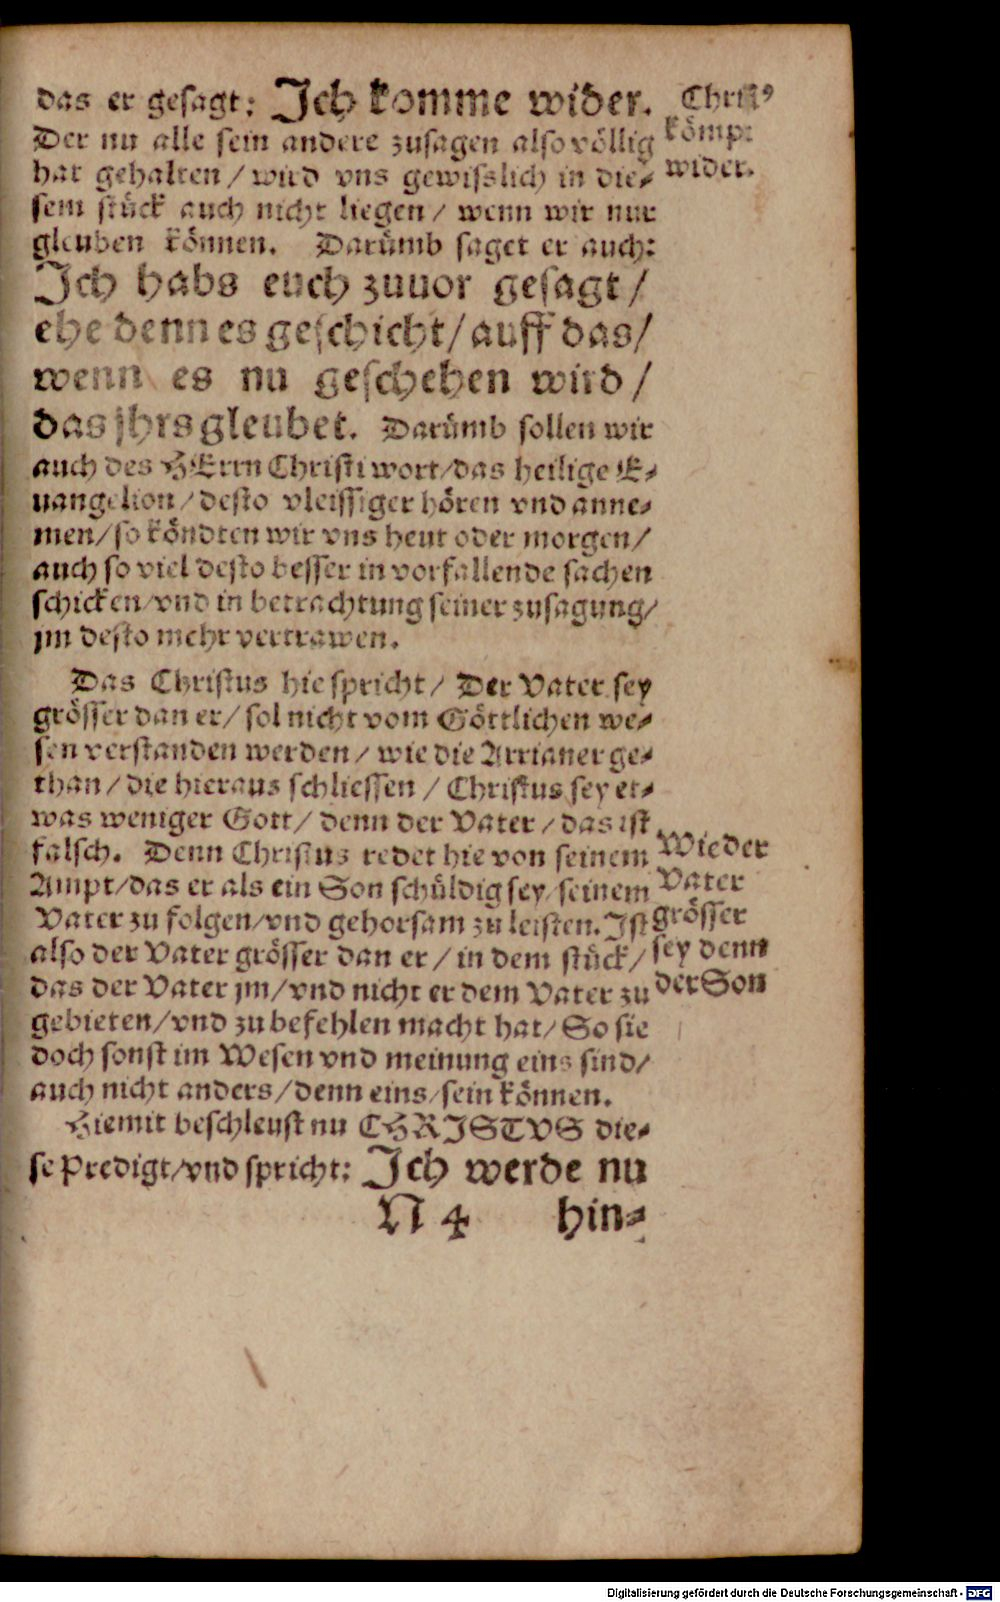 das er gesagt: Ich komme wider.
Der nu alle sein andere zusagen also völlig
hat gehalten / wird vns gewisslich in die-
sem stück auch nicht liegen / wenn wir nur
gleuben können. Darümb saget er auch:
Ich habs euch zuuor gesagt /
ehe denn es geschicht / auff das /
wenn es nu geschehen wird /
das jhrs gleubet. Darümb sollen wir
auch des HErrn Christi wort / das heilige E-
uangelion / desto vleissiger hören vnd anne-
men / so köndten wir vns heut oder morgen /
auch so viel desto besser in vorfallende sachen
schicken / vnd in betrachtung seiner zusagung /
jm desto mehr vertrawen.
Das Christus hie spricht / Der Vater sey
grösser dan er / sol nicht vom Göttlichen we-
sen verstanden werden / wie die Arrianer ge-
than / die hieraus schliessen / Christus sey et-
was weniger Gott / denn der Vater / das ist
falsch. Denn Christus redet hie von seinem
Ampt / das er als ein Son schüldig sey / seinem
Vater zu folgen / vnd gehorsam zu leisten. Ist
also der Vater grösser dan er / in dem stück /
das der Vater jm / vnd nicht er dem Vater zu
gebieten / vnd zu befehlen macht hat / So sie
doch sonst im Wesen vnd meinung eins sind /
auch nicht anders / denn eins / sein können.
Hiemit beschleust nu CHRISTVS die-
se Predigt / vnd spricht: Ich werde nu
N 4 hin-
Christ⁹
kömpt
wider.
Wie der
Vater
grösser
sey denn
der Son
Digitalisierung gefördert durch die Deutsche Forschungsgemeinschaft - DFG